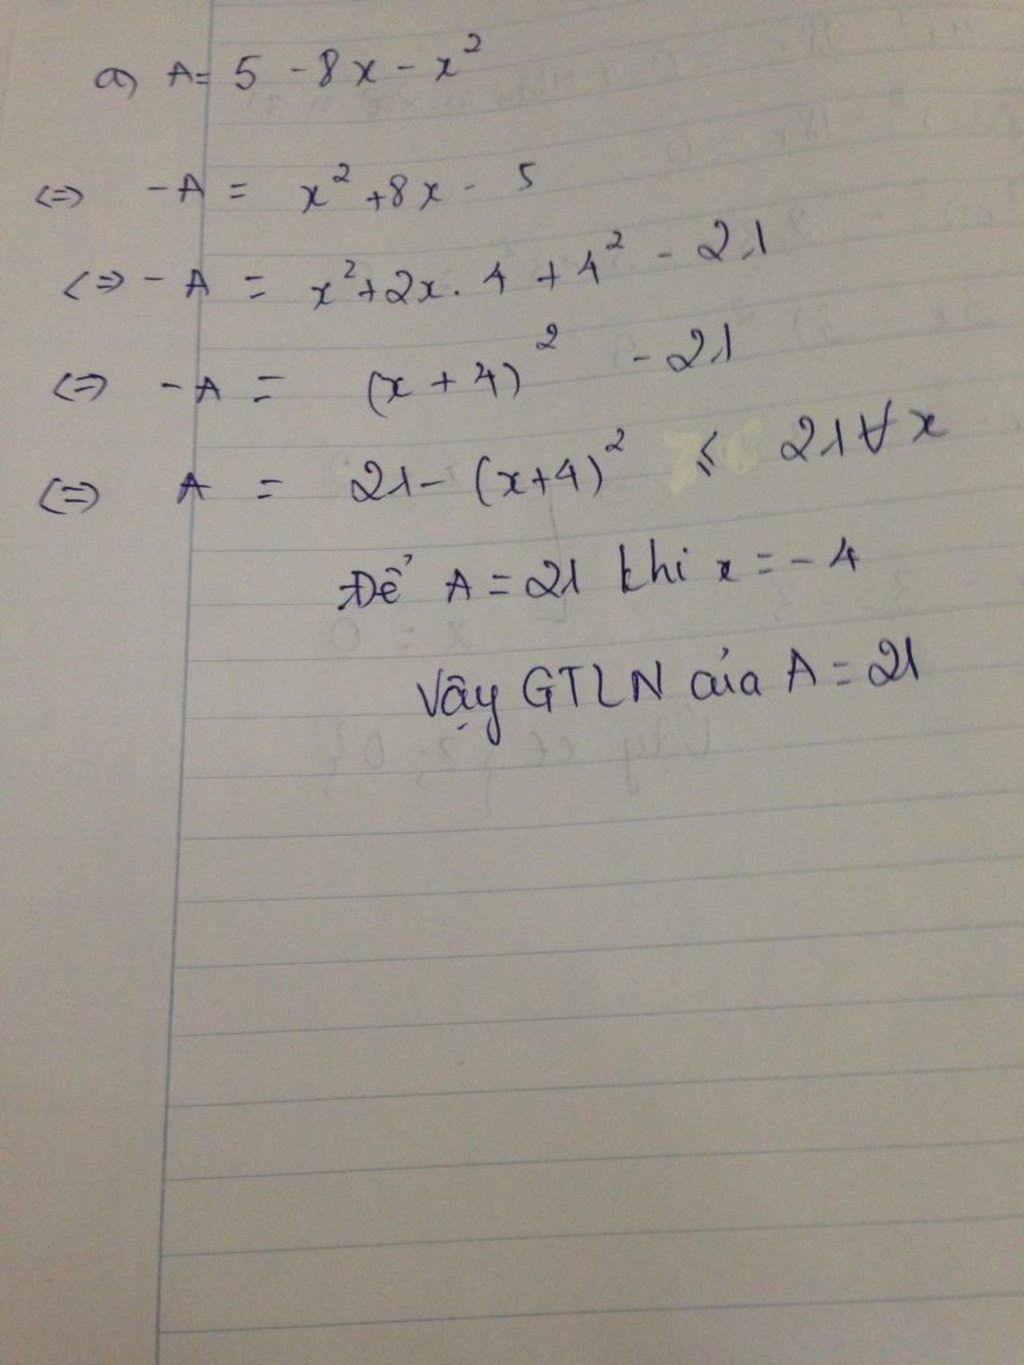 a) A = 5 - 8x - x²
<=> -A = x² + 8x - 5
<=> -A = x² + 2x . 4 + 4² - 21
<=> -A = (x + 4)² - 21
<=> A = 21 - (x+4)² ≤ 21 ∀ x
Để A = 21 khi x = - 4
Vậy GTLN của A = 21